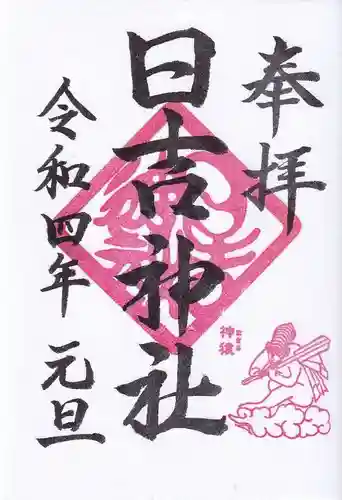 奉拝
日吉神社
令和四年 元旦
神猿